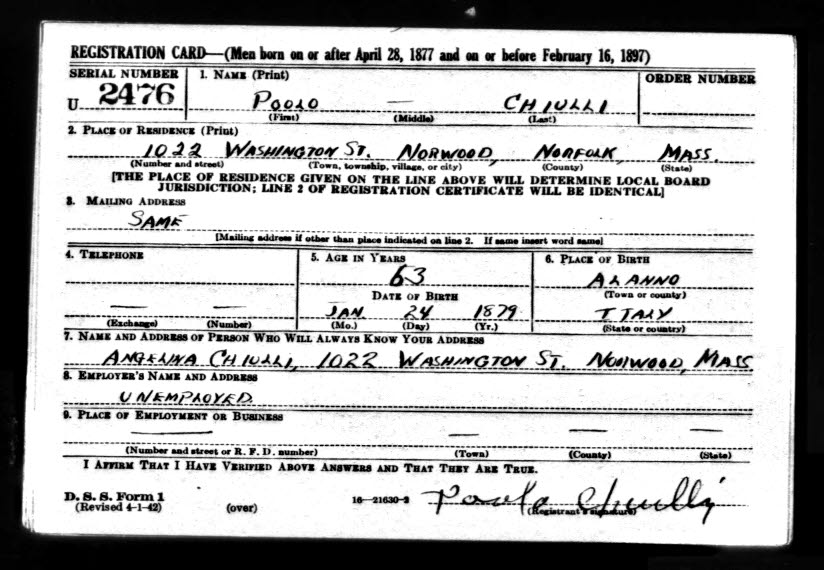 REGISTRATION CARD—(Men born on or after April 28, 1877 and on or before February 16, 1897)
SERIAL NUMBER 1. NAME (Print) ORDER NUMBER
U 2476 POOLO — CHIULLI
(First) (Middle) (Last)
2. PLACE OF RESIDENCE (Print)
1022 WASHINGTON ST. NORWOOD, NORFOLK, MASS.
(Number and street) (Town, township, village, or city) (County) (State)
[THE PLACE OF RESIDENCE GIVEN ON THE LINE ABOVE WILL DETERMINE LOCAL BOARD
JURISDICTION; LINE 2 OF REGISTRATION CERTIFICATE WILL BE IDENTICAL]
3. MAILING ADDRESS
SAME
[Mailing address if other than place indicated on line 2. If same insert word same]
4. TELEPHONE 5. AGE IN YEARS 6. PLACE OF BIRTH
63 ALANNO
DATE OF BIRTH (Town or county)
— — JAN. 24 1879 ITALY
(Exchange) (Number) (Mo.) (Day) (Yr.) (State or country)
7. NAME AND ADDRESS OF PERSON WHO WILL ALWAYS KNOW YOUR ADDRESS
ANGELINA CHIULLI, 1022 WASHINGTON ST. NORWOOD, MASS
8. EMPLOYER'S NAME AND ADDRESS
UNEMPLOYED
9. PLACE OF EMPLOYMENT OR BUSINESS
— — — —
(Number and street or R. F. D. number) (Town) (County) (State)
I AFFIRM THAT I HAVE VERIFIED ABOVE ANSWERS AND THAT THEY ARE TRUE.
D. S. S. Form 1
(Revised 4-1-42) (over) 16—21630-2 Paolo Chiulli
(Registrant's signature)